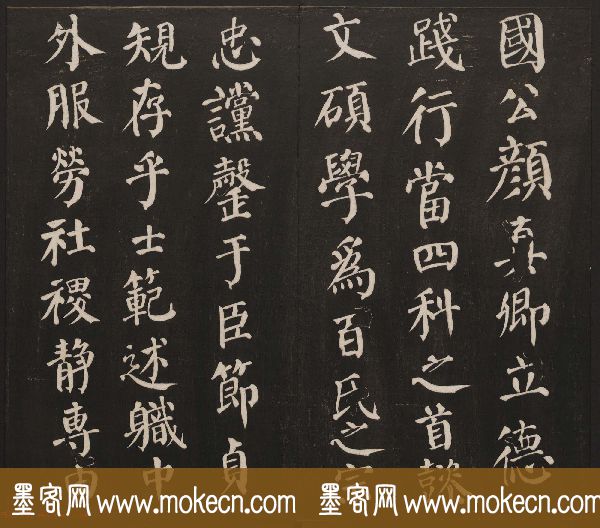 國公顏真卿立德
踐行當四科之首懿
文碩學爲百氏之宗
忠讜罄于臣節貞
規存乎士範述軄中
外服勞社稷静專由
墨客网 www.mokecn.com 墨客网 www.mokecn.com